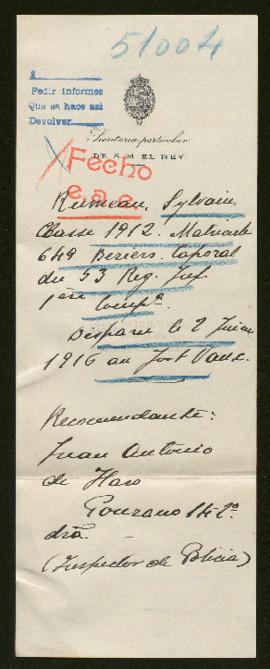 51004
1
Pedir informes
Que se hace asi
Devolver
Secretaria particular
DE S. M. EL REY
Fecho
e.a.c.
Rumeau, Sylvain,
Classe 1912. Matricule
649 Beziers. Caporal
du 53 Reg. Inf.
1ère Compª.
Disparu le 2 Juin
1916 au fort Vaux.
Recomendante:
Juan Antonio
de Haro
14-2º
drª.
(Inspector de Policia)